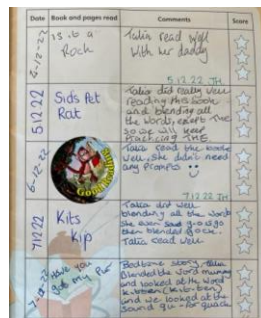 Date Book and pages read Comments Score
4-12-22
is a
Rock
Talia read well
with her daddy
5.12.22 JH
5.12.22
Sids Pet
Rat
Talia did really well
reading this book
and blending all
the words, except The
so we will keep
practicing THE
6-12-22
Good reading
Talia read the book
well, she didn't need
any prompts
7.12.22 JH
7.12.22
Kits
Kip
Talia did well
blending all the words
she even said
then blended
Talia read well
7-12-22
Have you
got my
Bedtime story. Talia
Blended the word mummy
and looked at the word
and we looked at the
sound qu - for quack